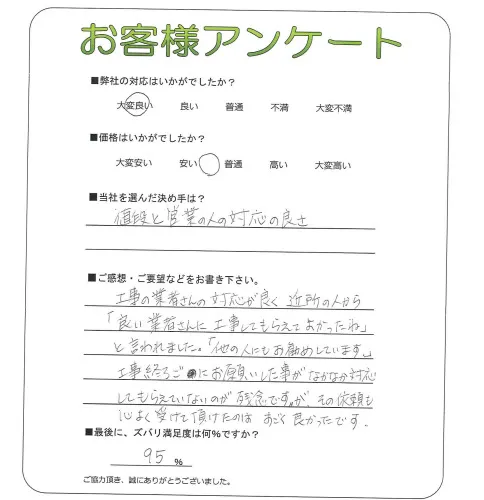 お客様アンケート
■弊社の対応はいかがでしたか？
大変良い 良い 普通 不満 大変不満
■価格はいかがでしたか？
大変安い 安い 普通 高い 大変高い
■当社を選んだ決め手は？
値段と営業の人の対応の良さ
■ご感想・ご要望などをお書き下さい。
工事の業者さんの対応が良く 近所の人から
「良い業者さんに工事してもらえてよかったね」
と言われました。「他の人にもお勧めしています。」
工事終ろごにお願いした事がなかなか対応
してもらえていないのが残念ですが その依頼も
心よく受けて頂けたのは すごく良かったです.
■最後に、ズバリ満足度は何%ですか？
95 %
ご協力頂き、誠にありがとうございました。